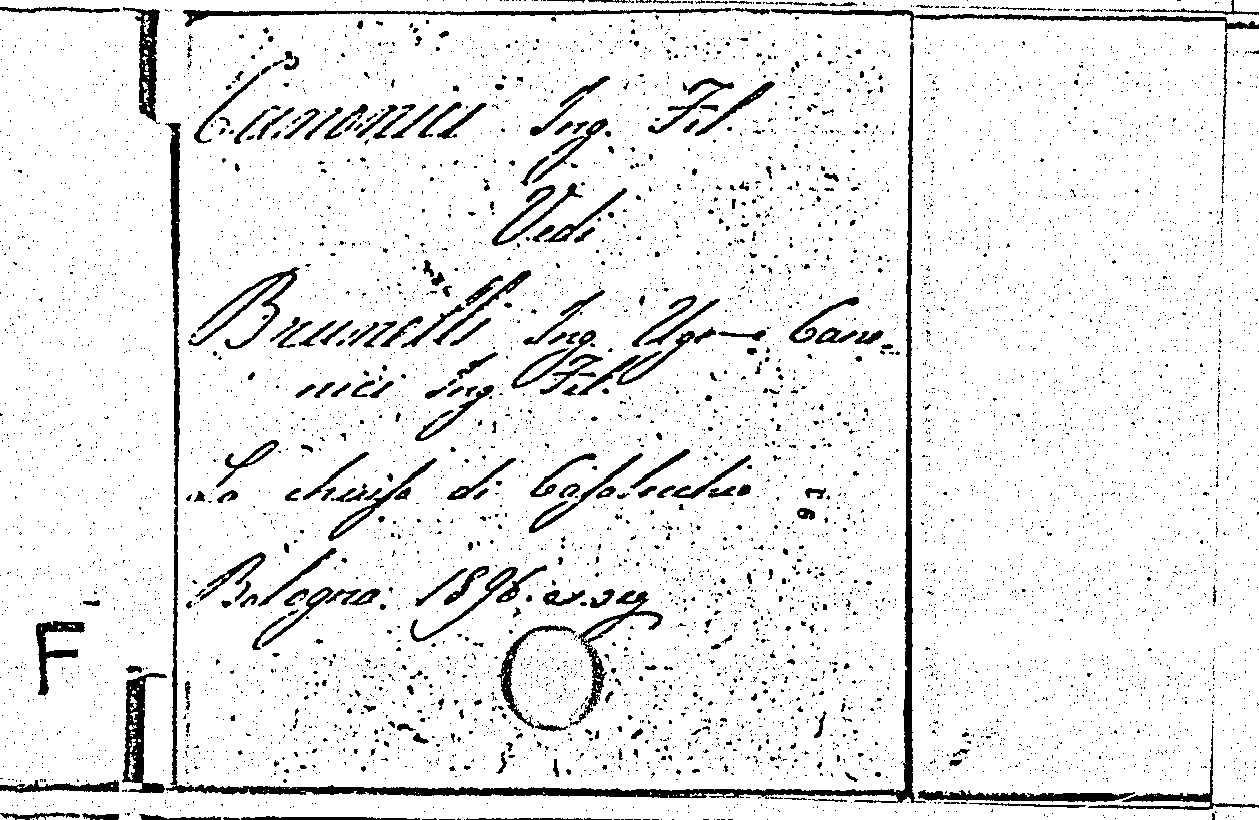 Canonici Ing. Fil.
Vedi
Brunelli Ing. Ugo e Cano-
nici Ing. Fil.
La chiusa di Casalecchio
Bologna. 1896.
F